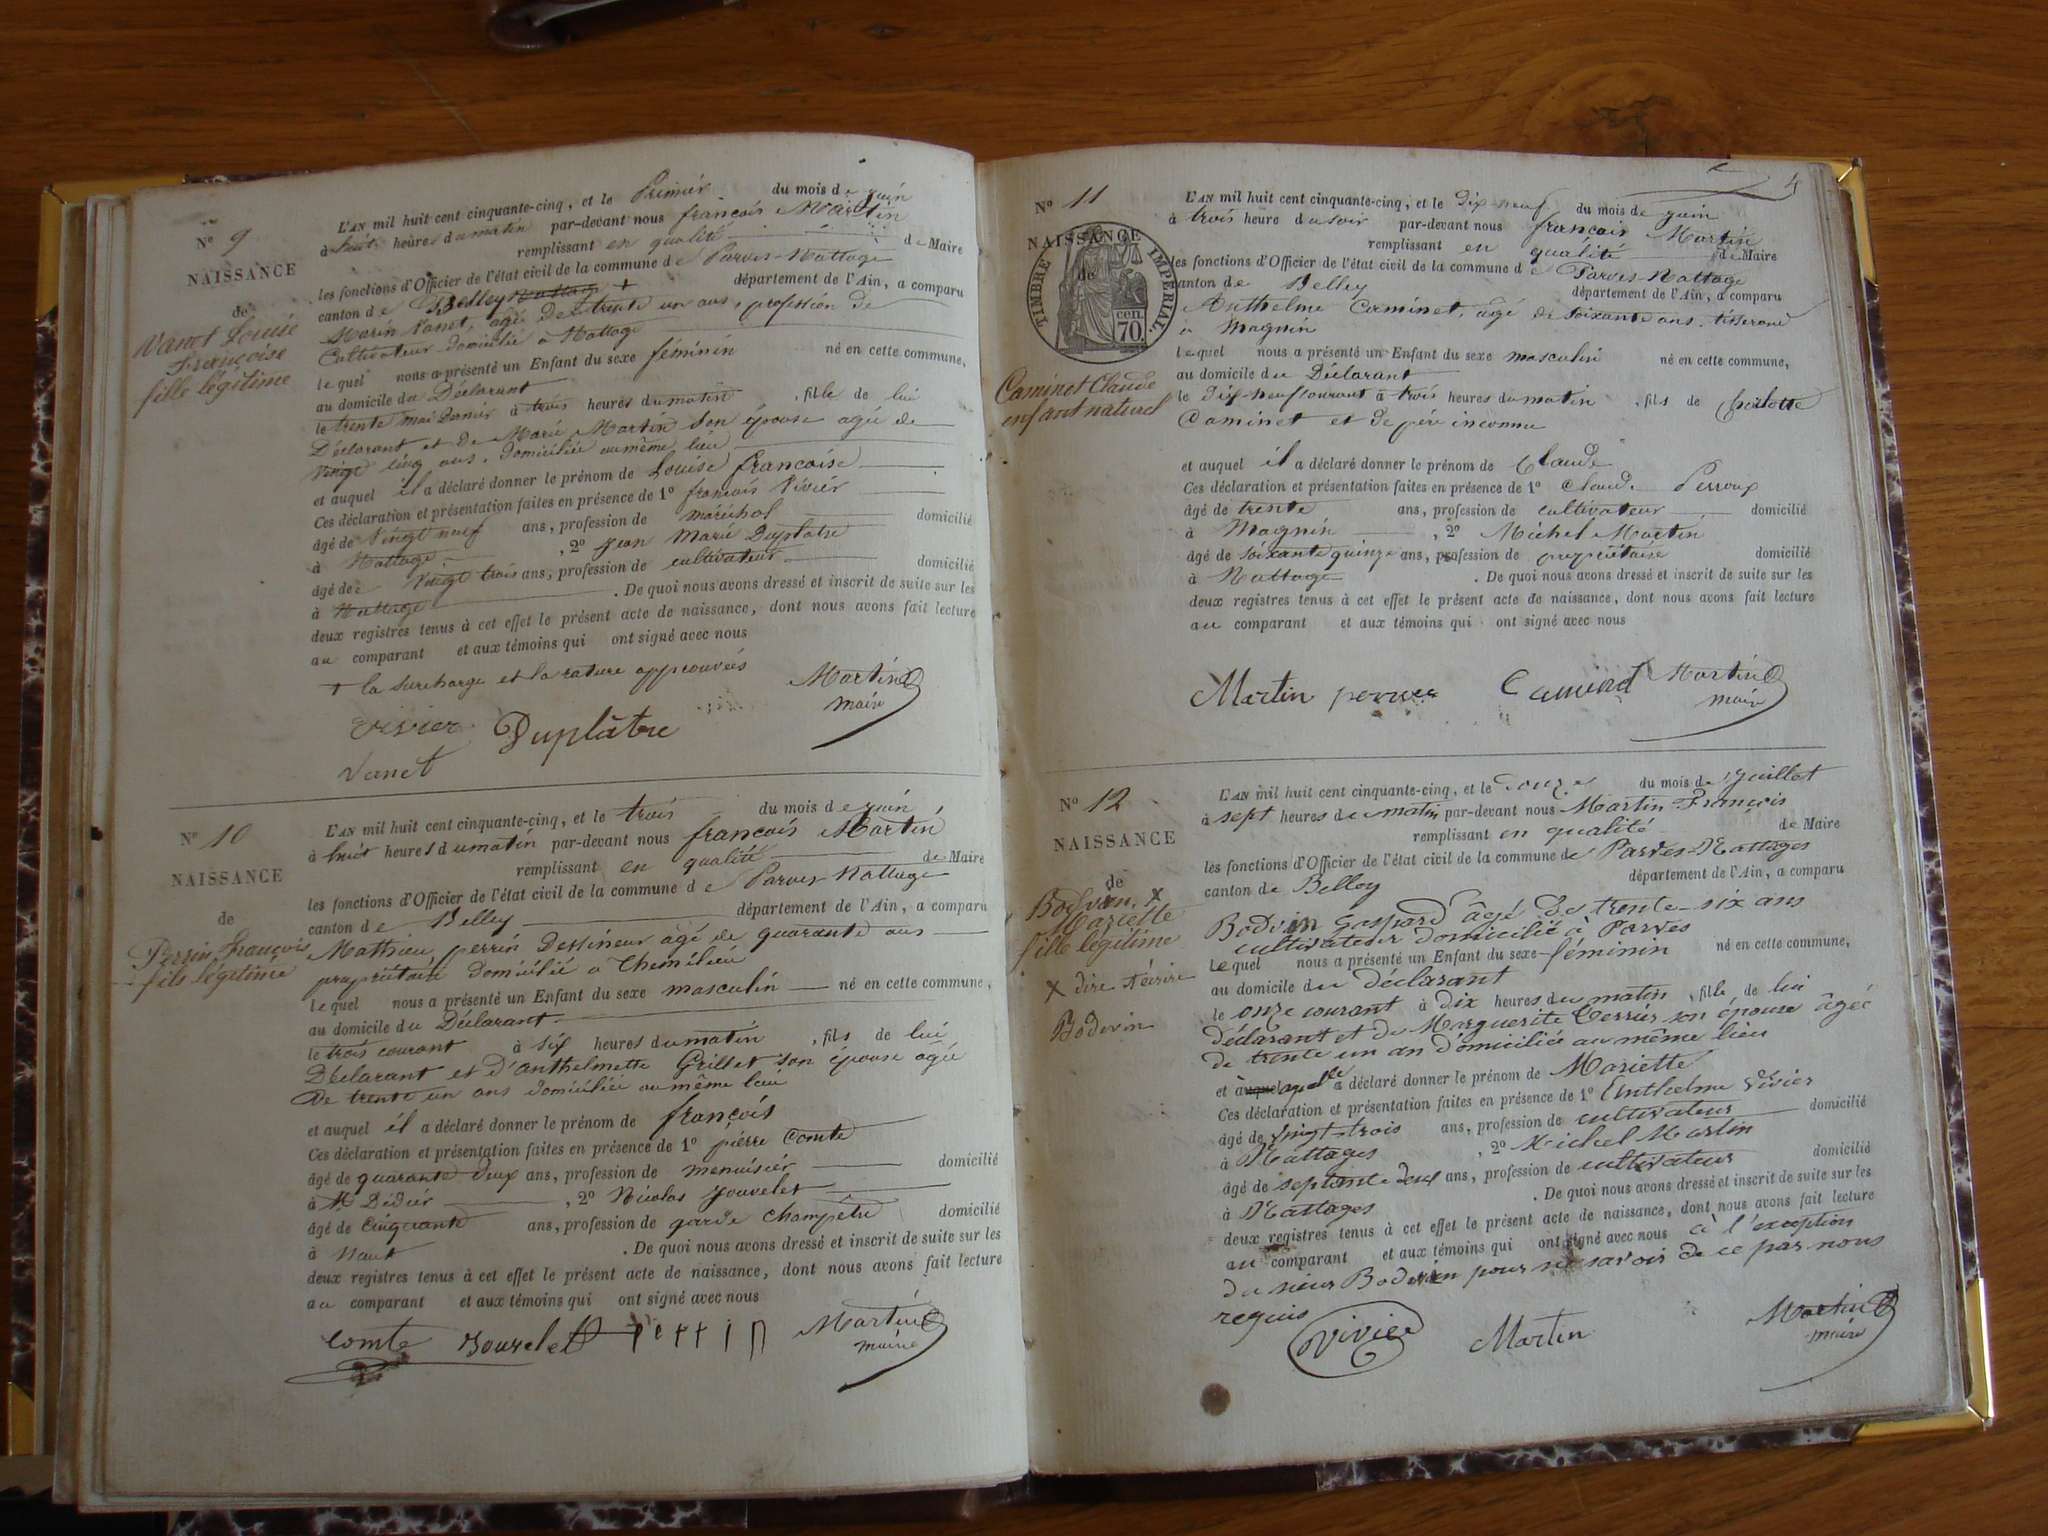 N° 9
NAISSANCE
de
Vanet Louise
Françoise
fille légitime
L'AN mil huit cent cinquante-cinq, et le Premier du mois de juin
à huit heures du matin par-devant nous françois Martin
remplissant en qualité de Maire
les fonctions d'Officier de l'état civil de la commune de Parves-Nattage
canton de Belley Nattage + département de l'Ain, a comparu
Marin Vanet, âgé de trente un ans, profession de
Cultivateur domicilié à Nattage
lequel nous a présenté un Enfant du sexe féminin né en cette commune,
au domicile du Déclarant
le trente mai Dernier à trois heures du matin, fille de lui
Déclarant et de Marie Martin Son épouse agée de
Vingt cinq ans, Domiciliée au même lieu
et auquel il a déclaré donner le prénom de Louise françoise
Ces déclaration et présentation faites en présence de 1° françois Vivier
âgé de Vingt neuf ans, profession de maréchal domicilié
à Nattage, 2° Jean Marie Duplatre
âgé de Vingt trois ans, profession de cultivateur domicilié
à Nattage. De quoi nous avons dressé et inscrit de suite sur les
deux registres tenus à cet effet le présent acte de naissance, dont nous avons fait lecture
au comparant et aux témoins qui ont signé avec nous
+ la surcharge et la rature approuvées
Martin
maire
Vivier Duplâtre
Vanet
N° 10
NAISSANCE
de
Perrin françois
fils légitime
L'AN mil huit cent cinquante-cinq, et le trois du mois de juin
à huit heures du matin par-devant nous françois Martin
remplissant en qualité de Maire
les fonctions d'Officier de l'état civil de la commune de Parves-Nattage
canton de Belley département de l'Ain, a comparu
Mathieu perrin Dessineur agé de quarante ans
propriétaire domicilié à Chemilieu
lequel nous a présenté un Enfant du sexe masculin né en cette commune,
au domicile du Déclarant
le trois courant à six heures du matin, fils de lui
Déclarant et d'anthelmette Grillet son épouse agée
De trente un ans domiciliée au même lieu
et auquel il a déclaré donner le prénom de françois
Ces déclaration et présentation faites en présence de 1° pierre Comte
âgé de quarante deux ans, profession de menuisier domicilié
à St Didier, 2° Nicolas Jouvelet
âgé de Cinquante ans, profession de garde Champêtre domicilié
à Nant. De quoi nous avons dressé et inscrit de suite sur les
deux registres tenus à cet effet le présent acte de naissance, dont nous avons fait lecture
au comparant et aux témoins qui ont signé avec nous
comte Perrin Martin
maire
4
N° 11
NAISSANCE
de
TIMBRE IMPERIAL.
cen.
70.
Caminet Claude
enfant naturel
L'AN mil huit cent cinquante-cinq, et le dix-neuf du mois de juin
à trois heure du soir par-devant nous françois Martin
remplissant en qualité de Maire
les fonctions d'Officier de l'état civil de la commune de Parves-Nattage
canton de Belley département de l'Ain, a comparu
Anthelme Caminet, âgé de soixante ans, tisserand
à Magnin
lequel nous a présenté un Enfant du sexe masculin né en cette commune,
au domicile du Déclarant
le Dix-neuf courant à trois heures du matin, fils de
Caminet et de père inconnu
et auquel il a déclaré donner le prénom de Claude
Ces déclaration et présentation faites en présence de 1° Claude Perroux
âgé de trente ans, profession de cultivateur domicilié
à Magnin, 2° Michel Martin
âgé de soixante quinze ans, profession de propriétaire domicilié
à Nattage. De quoi nous avons dressé et inscrit de suite sur les
deux registres tenus à cet effet le présent acte de naissance, dont nous avons fait lecture
au comparant et aux témoins qui ont signé avec nous
Martin Martin
maire
N° 12
NAISSANCE
de
Bodvin, x
Mariette
fille légitime
x dire et écrire
Bodevin
L'AN mil huit cent cinquante-cinq, et le onze du mois de Juillet
à sept heures du matin par-devant nous Martin François
remplissant en qualité de Maire
les fonctions d'Officier de l'état civil de la commune de Parves-Nattages
canton de Belley département de l'Ain, a comparu
Bodvin Gaspard âgé de trente-six ans
cultivateur domicilié à Parves
lequel nous a présenté un Enfant du sexe féminin né en cette commune,
au domicile du déclarant
le onze courant à dix heures du matin, fille de lui
déclarant et de Marguerite Perrier son épouse âgée
de trente un an domiciliée au même lieu
et à laquelle a déclaré donner le prénom de Mariette
Ces déclaration et présentation faites en présence de 1° Anthelme Vivier
âgé de vingt-trois ans, profession de cultivateur domicilié
à Nattages, 2° Michel Martin
âgé de septante deux ans, profession de cultivateur domicilié
à Nattages. De quoi nous avons dressé et inscrit de suite sur les
deux registres tenus à cet effet le présent acte de naissance, dont nous avons fait lecture
au comparant et aux témoins qui ont signé avec nous à l'exception
du sieur Bodevin pour ne savoir de ce par nous
requis
Vivier Martin Martin
maire